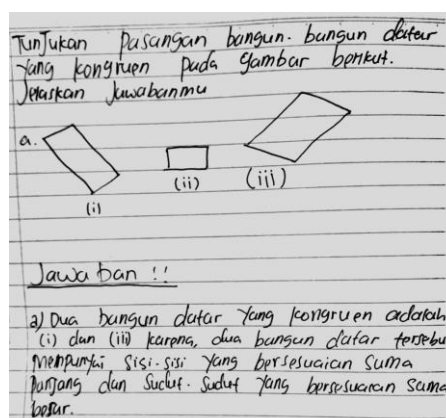 Tunjukan pasangan bangun-bangun datar
yang kongruen pada gambar berikut.
Jelaskan Jawabanmu
a.
(i)
(ii)
(iii)
Jawaban !!
a) Dua bangun datar yang kongruen adalah
(i) dan (iii) karena, dua bangun datar tersebu
Mempunyai sisi-sisi yang bersesuaian sama
panjang dan sudut-sudut yang bersesuaian sama
besar.